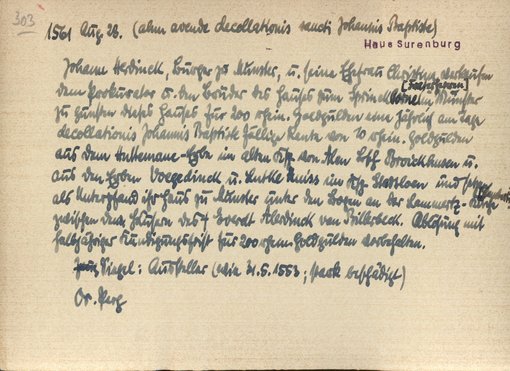 303
1561 Aug 28. (ahm avende decollationis sancti Johannis Baptiste)
Haus Surenburg
Johann Herdinck, Bürger zu Münster, u. seine Ehefrau Christina verkaufen
[Fraterherren]
dem Prokurator u. den Brüder des Hauses zum Springborne in Münster
zu gunsten dieses Hauses für 200 rhein. Goldgulden eine jährlich am tage
decollationis Johannis Baptiste fällige Rente von 10 rhein. Goldgulden
aus dem Huttemans-Erbe im alten Ksp. von Alen Bsch. Broickhusen u.
aus den Erben Voegedinck u. im Ksp. und setzen
als Unterpfand ihr Haus zu Münster unter den Bogen an der Lammertz-Kirche
zwischen den Häusern des † Everdt Alerdinck von Billerbeck. Ablösung mit
halbjähriger Kündigungsfrist für 200 rhein. Goldgulden vorbehalten.
Siegel: Aussteller (wie 31.5.1553; stark beschädigt)
Or. Perg